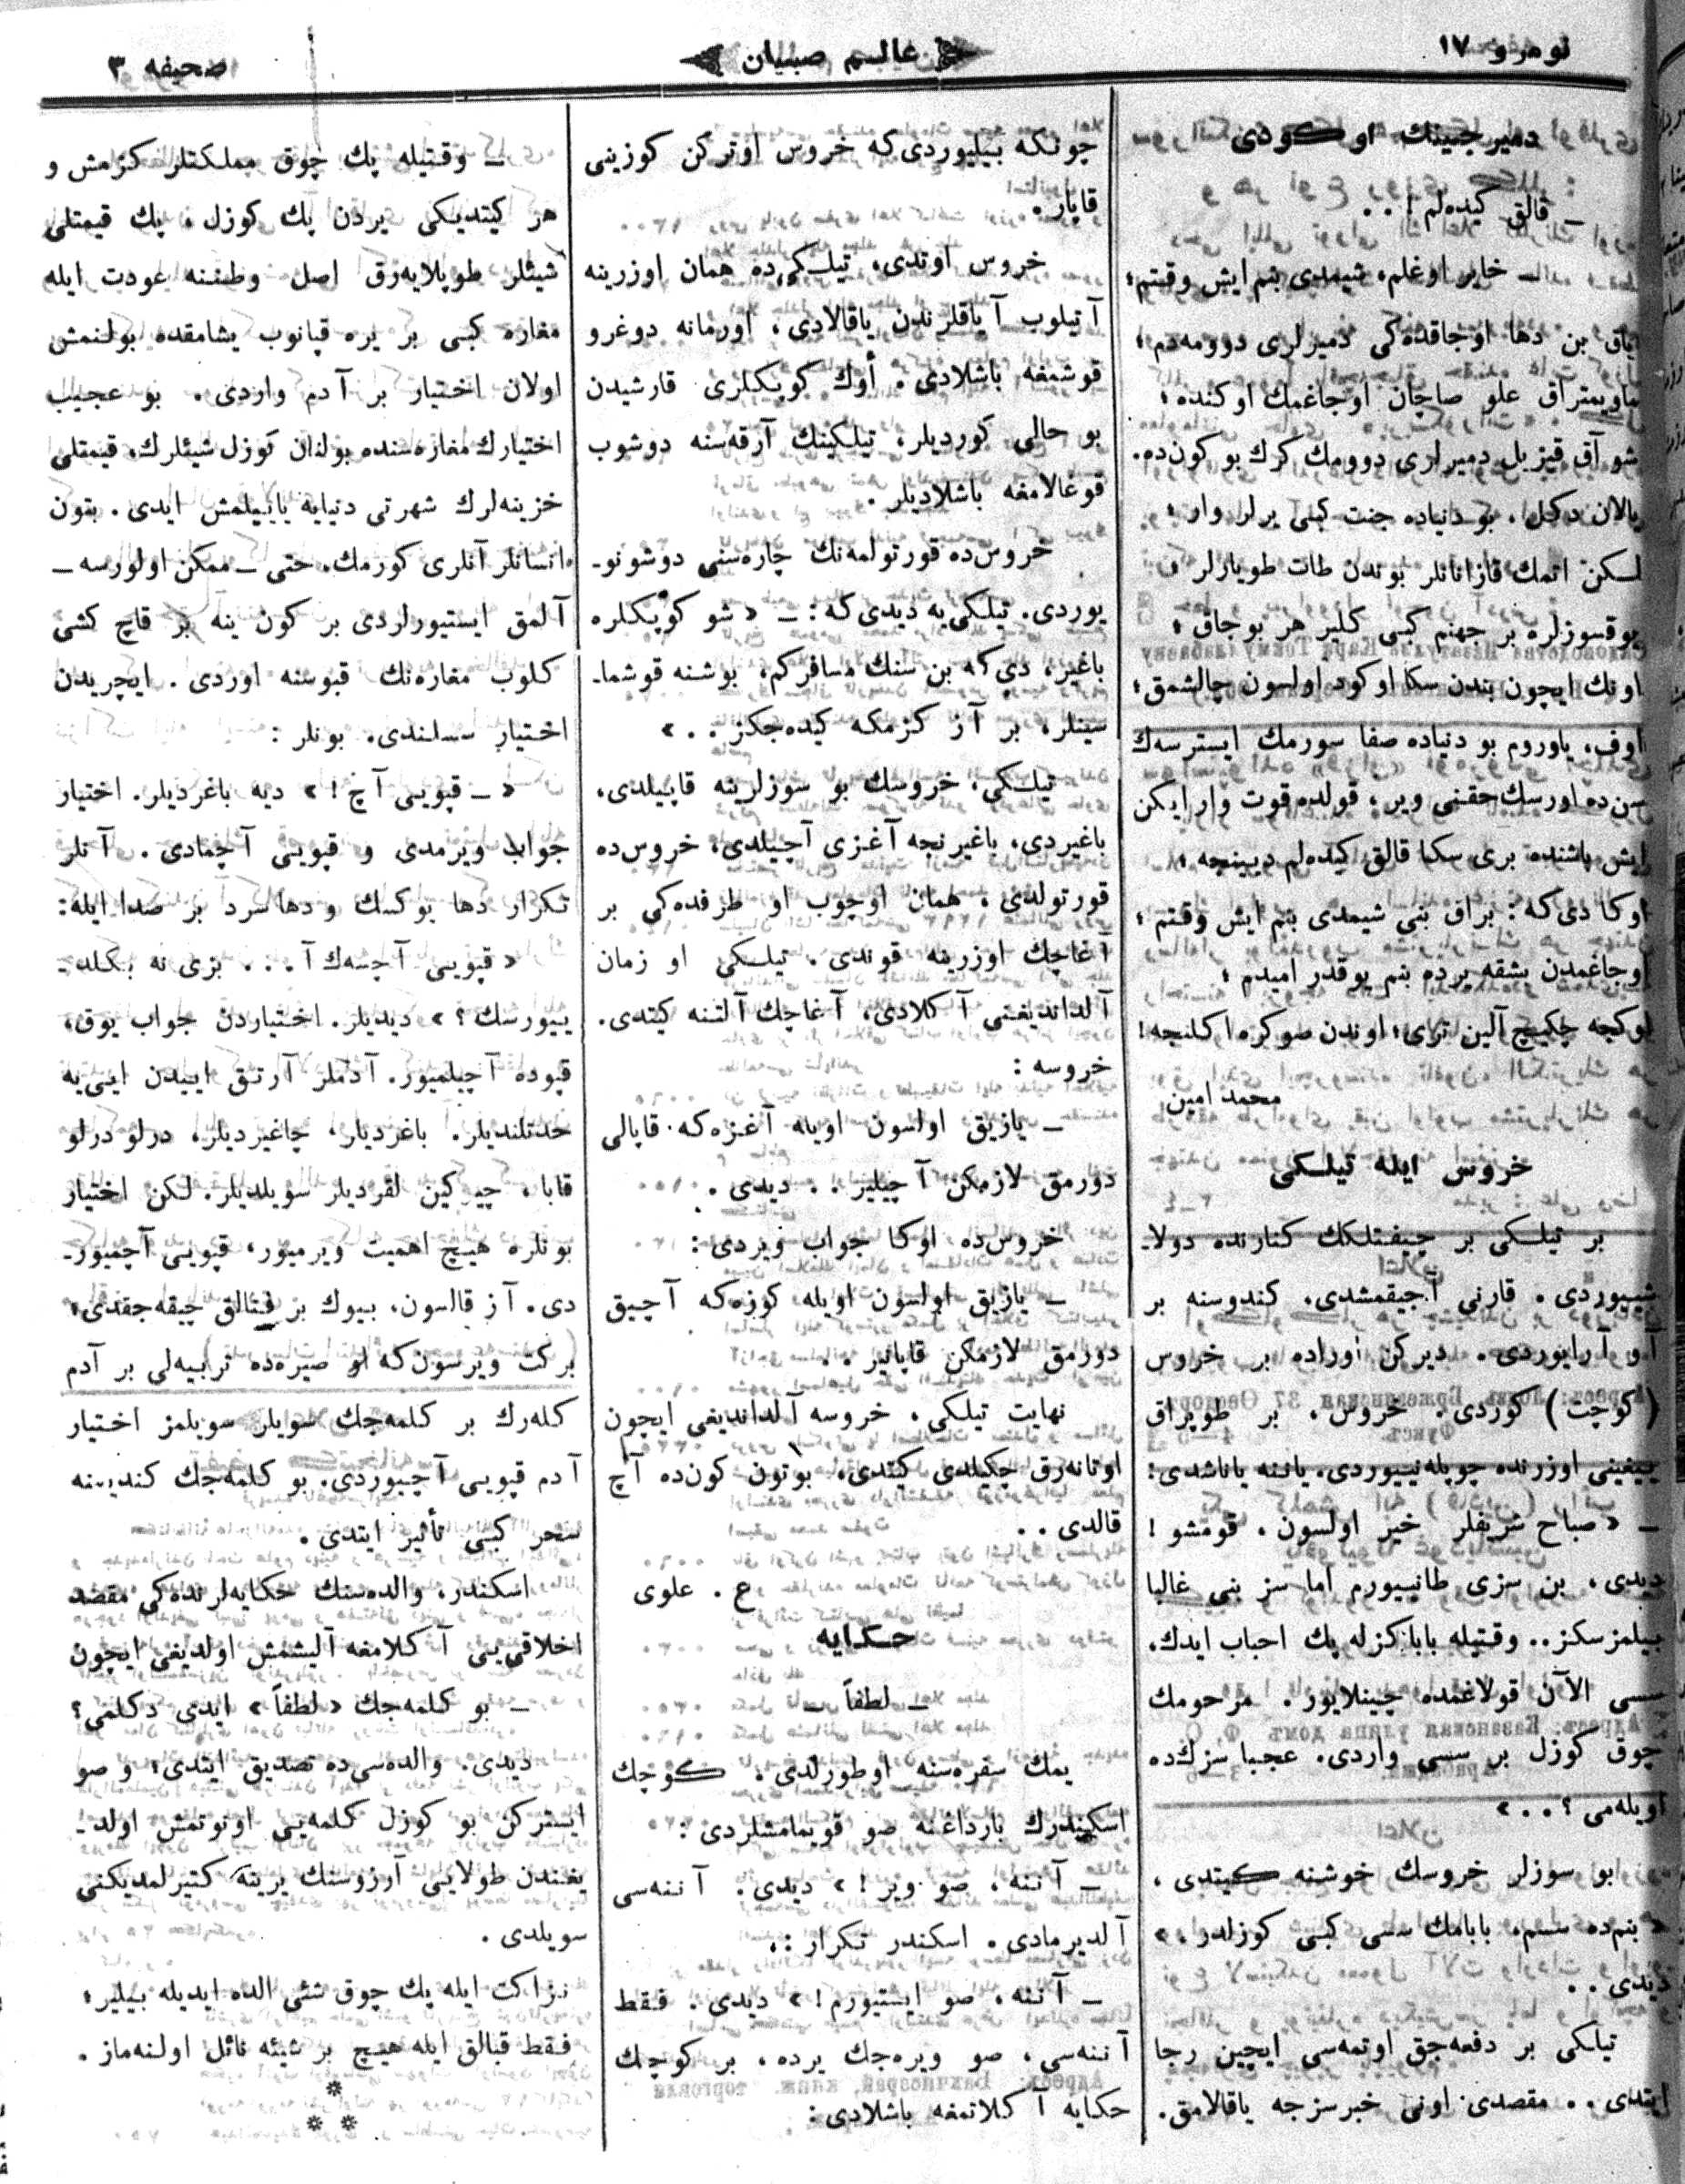 نومرو ١٧
عالم صبيان
صحيفه ٣
دميرجينك اوكودى
ـ قالق كيده‌لم ! . .
ـ خاير اوغلم، شيمدى بنم ايش وقتم؛
باق بن دها اوجاقده‌كى دميرلرى دوومه‌دم؛
ماويمتراق علو صاچان اوجاغمك اوكنده ؛
شو آق قيزيل دميرلرى دوومك كرك بو كون‌ده.
يالان دكل، بو دنياده جنت كبى يرلر وار ؛
لسكن اتمك قازانانلر بوندن طات طويارلر ،
يوقسوزلره بر جهنم كبى كلير هر بوجاق ؛
اونك ايچون بندن سكا اوكود اولسون چالشمق؛
اوف، ياوروم بو دنياده صفا سورمك ايسترسه‌ك
سن‌ده اورسك حقنى وير ، قولده قوت وار ايكن
ايش باشنده برى سكا قالق كيده‌لم ديينجه ؛
اوكا دى‌كه : براق بنى شيمدى بنم ايش وقتم ؛
اوجاغمدن بشقه يرده بنم يوقدر اميدم ؛
اوكجه چكيچ آلين ترى؛ اوندن صوكره اكلنجه!
محمد امين
خروس ايله تيلكى
بر تيلكى بر چيفتلكك كنارنده دولا-
شييوردى . قارنى آجيقمشدى. كندوسنه بر
آو آرايوردى . ديركن اوراده بر خروس
(كوچت) كوردى. خروس، بر طوپراق
ييغينى اوزرنده چوپله‌نييوردى. ياننه ياناشدى؛
ـ « صباح شريفلر خير اولسون، قومشو !
ديدى، بن سزى طانييورم اما سز بنى غالبا
بيلمزسكز.. وقتيله باباكزله پك احباب ايدك،
سسى الآن قولاغمده چينلايور . مرحومك
چوق كوزل بر سسى واردى. عجبا سزك‌ده
اويله‌مى ؟ . . »
بو سوزلر خروسك خوشنه كيتدى ،
« بنم‌ده سسم، بابامك سسى كبى كوزلدر، »
ديدى . .
تيلكى بر دفعه‌جق اوتمه‌سى ايچين رجا
ايتدى . . مقصدى اونى خبرسزجه ياقالامق.
چونكه بيليوردى‌كه خروس اوتركن كوزينى
قاپار .
خروس اوتدى، تيلكى‌ده همان اوزرينه
آتيلوب آياقلرندن ياقالادى، اورمانه دوغرو
قوشمغه باشلادى . أوك كوپكلرى قارشيدن
بو حالى كورديلر، تيلكينك آرقه‌سنه دوشوب
قوغالامغه باشلاديلر .
خروس‌ده قورتولمه‌نك چاره‌سنى دوشونو-
يوردى. تيلكى‌يه ديدى‌كه : ـ « شو كوپكلره
باغير، دى كه بن سنك مسافركم، بوشنه قوشما-
سينلر، بر آز كزمكه كيده‌جكز . . »
تيلكى، خروسك بو سوزلرينه قاپيلدى،
باغيردى، باغيرنجه آغزى آچيلدى، خروس‌ده
قورتولدى ، همان اوچوب او طرفده‌كى بر
آغاچك اوزرينه قوندى . تيلكى او زمان
آلداندیغنى آكلادى، آغاچك آلتنه كيتدى.
خروسه :
ـ يازيق اولسون اويله آغزه‌كه قاپالى
دورمق لازمكن آچيلير . . ديدى .
خروس‌ده اوكا جواب ويردى :
ـ يازيق اولسون اويله كوزه‌كه آچيق
دورمق لازمكن قاپانير . .
نهايت تيلكى، خروسه آلداندیغى ايچون
اوتانه‌رق چكيلدى كيتدى، بوتون كون‌ده آچ
قالدى . .
ع . علوى
حكايه
ـ لطفاً ـ
يمك سفره‌سنه اوطورلدى . كوچك
اسكندرك بارداغنه صو قويمامشلردى :
ـ آننه، صو وير ! » ديدى. آننه‌سى
آلديرمادى. اسكندر تكرار :
ـ آننه، صو ايستيورم ! » ديدى. فقط
آننه‌سى، صو ويره‌جك يرده، بر كوچك
حكايه آكلاتمغه باشلادى :
ـ وقتيله پك چوق مملكتلر كزمش و
هر كيتديكى يردن پك كوزل ، پك قيمتلى
شيئلر طوپلايه‌رق اصل وطننه عودت ايله
مغاره كبى بر يره قپانوب يشامقده بولنمش
اولان اختيار بر آدم واردى . بو عجيب
اختيارك مغاره‌سنده بولنان كوزل شيئلرك، قيمتلى
خزينه‌لرك شهرتى دنيايه يابيلمش ايدى . بتون
انسانلر آنلرى كورمك، حتى ـ ممكن اولورسه ـ
آلمق ايستيورلردى بر كون ينه بر قاچ كشى
كلوب مغاره‌نك قپوسنه اوردى . ايچريدن
اختيار سسلندى. بونلر :
« ـ قپويى آچ ! » ديه باغرديلر. اختيار
جواب ويرمدى و قپويى آچمادى . آنلر
تكرار دها يوكسك و دها سرد بر صدا ايله:
« قپويى آچسه‌ك آ . . . بزى نه بكله-
يیورسك ؟ » ديديلر. اختياردن جواب يوق،
قپوده آچيلميور. آدملر آرتق اييدن ايى‌يه
حدتلنديلر. باغرديلر، چاغيرديلر، درلو درلو
قابا ، چيركين لقرديلر سويلديلر. لكن اختيار
بونلره هيچ اهميت ويرميور، قپويى آچميور-
دى. آز قالسون، بيوك بر فنالق چيقه‌جقدى؛
بركت ويرسون‌كه او صيره‌ده تربيه‌لى بر آدم
كله‌رك بر كلمه‌جك سويلر سويلمز اختيار
آدم قپويى آچيوردى. بو كلمه‌جك كنديسنه
سحر كبى تأثير ايتدى .
اسكندر، والده‌سنك حكايه‌لرنده‌كى مقصد
اخلاقى‌يى آكلامغه آليشمش اولديغى ايچون
ـ بو كلمه‌جك « لطفاً » ايدى دكلمى ؟
ديدى. والده‌سى‌ده تصديق ايتدى؛ و صو
ايستركن بو كوزل كلمه‌يى اونوتمش اولد-
يغندن طولايى آرزوسنك يرينه كتيرلمديكنى
سويلدى .
نزاكت ايله پك چوق شئى الده ايديله بيلير؛
فقط قبالق ايله هيچ بر شيئه نائل اولنه‌ماز .
*
* *